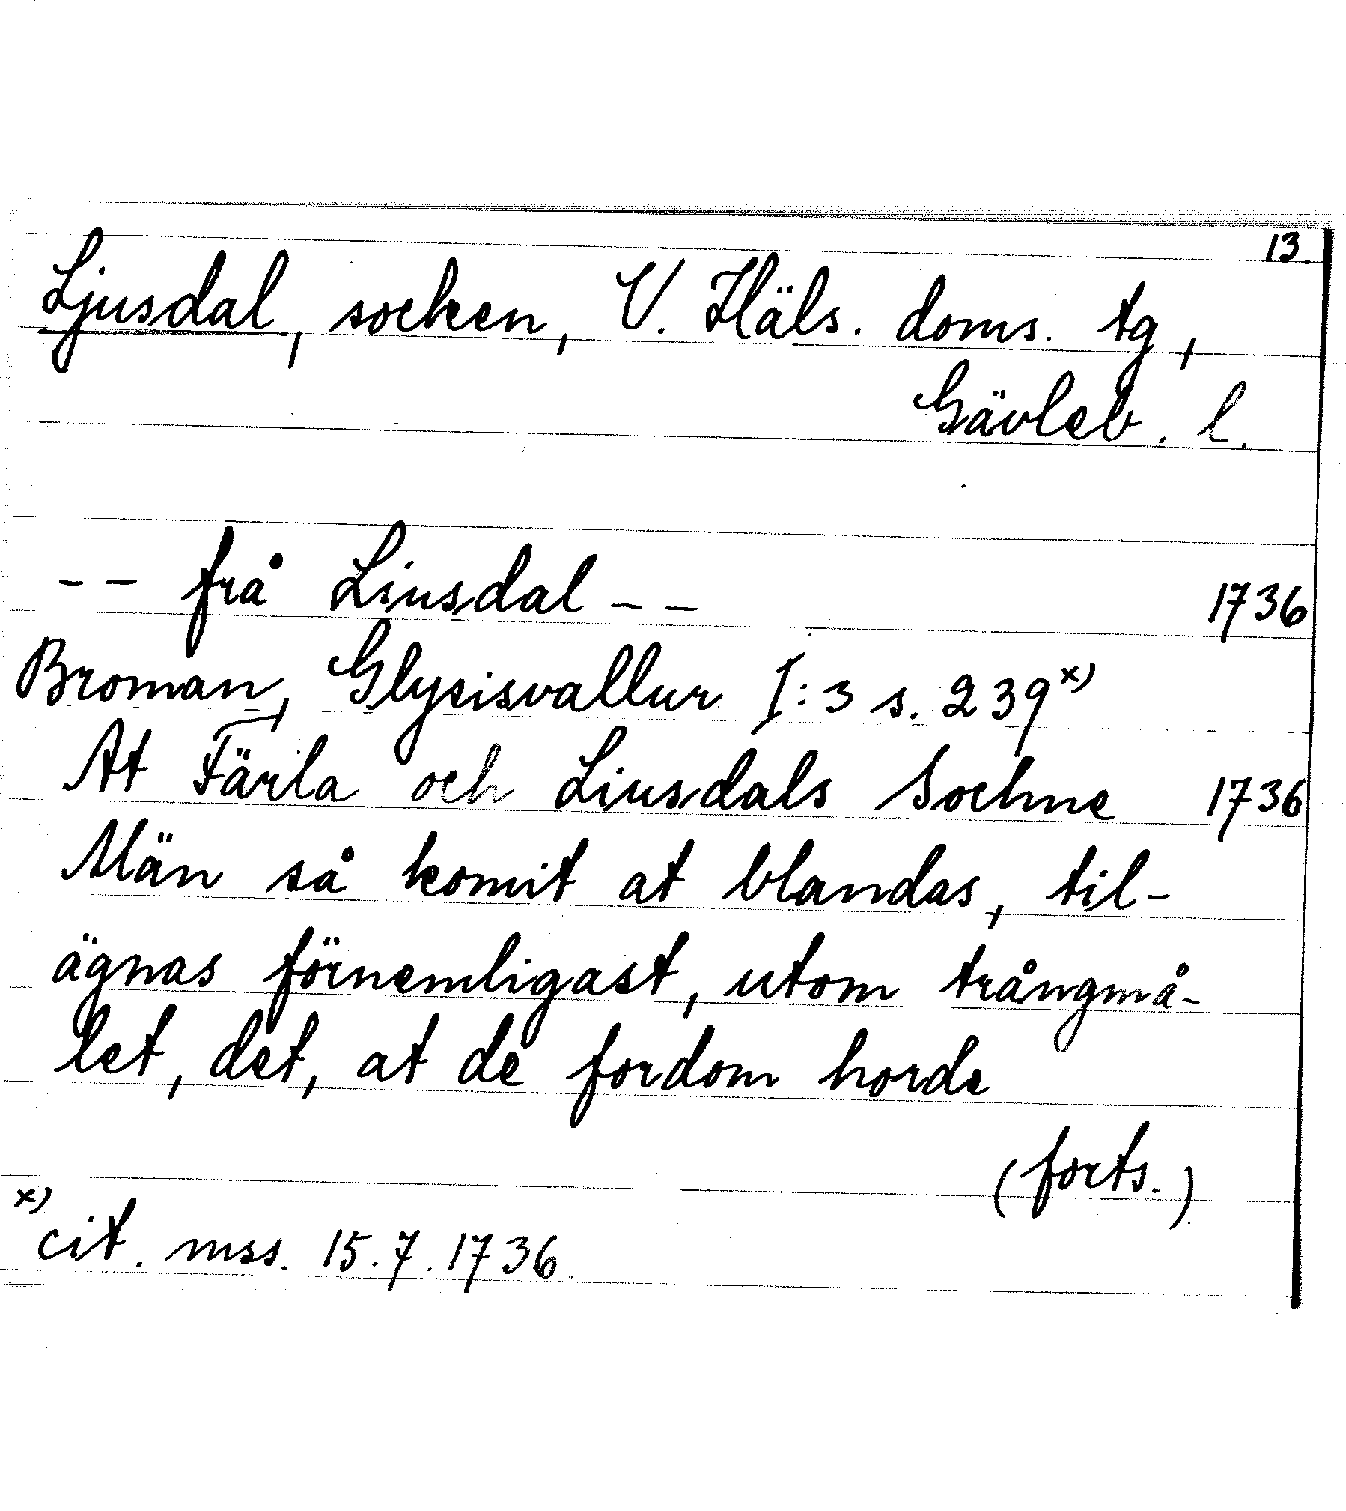 13.
Ljusdal, socken, V. Häls. doms. tg,
Gävleb. l.
-- frå Liusdal -- 1736
Broman, Glysisvallur I:3 s. 239 x)
At Färla och Liusdals Sochne 1736
Män så komit at blandas, til-
ägnas förnemligast, utom trångmå-
let, det, at de fordom horde
(forts.)
x) cit. mss. 15.7.1736.